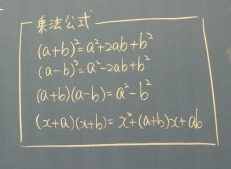 乗法公式
(a+b)²=a²+2ab+b²
(a-b)²=a²-2ab+b²
(a+b)(a-b)=a²-b²
(x+a)(x+b)=x²+(a+b)x+ab